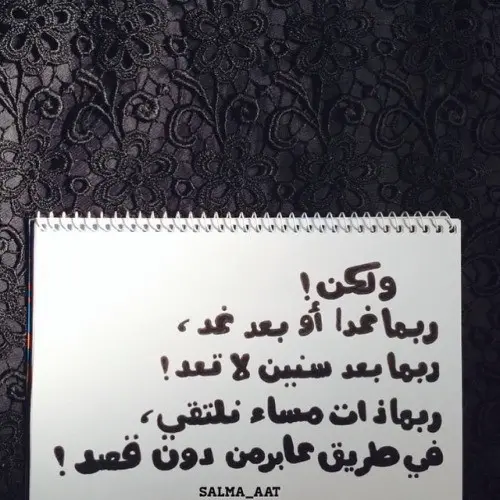 ولكن!
ربما غدا أو بعد غد،
ربما بعد سنين لا تعد!
ربما ذات مساء نلتقي،
في طريق عابر من دون قصد!
SALMA_AAT